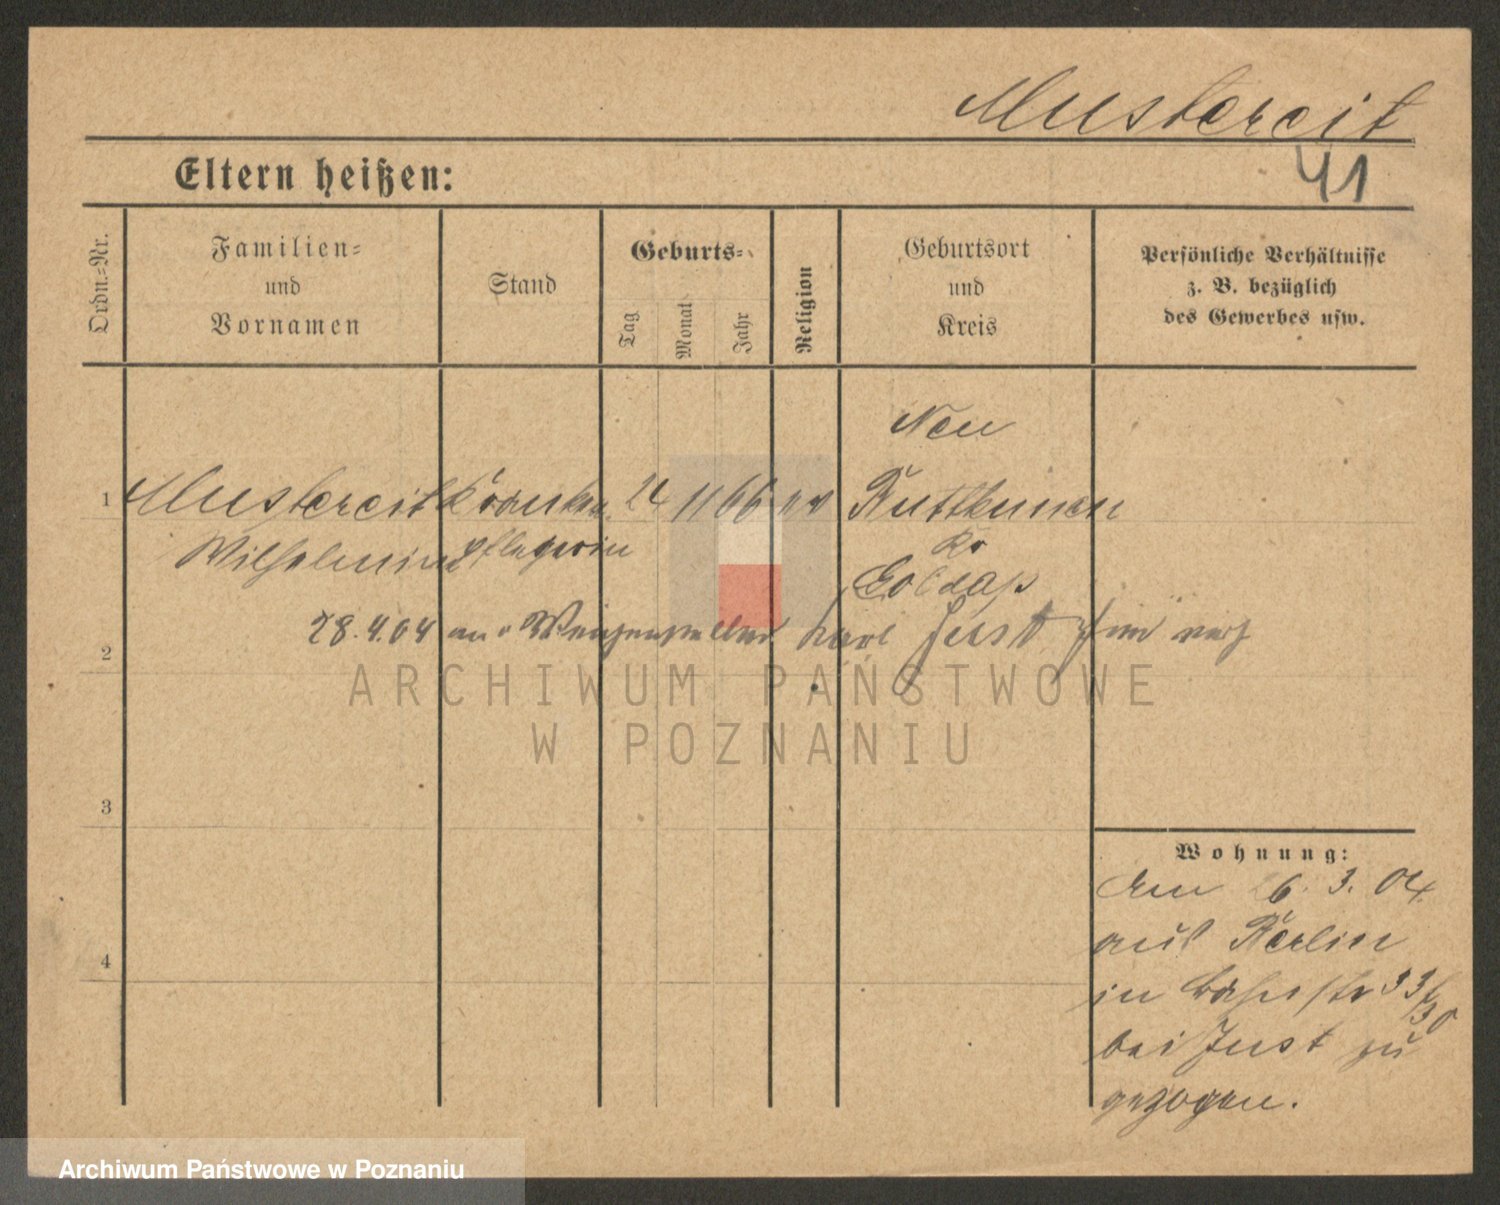 Mustereit
41
Eltern heißen:
Ordn.=Nr.
Familien=
und
Vornamen
Stand
Geburts=
Tag
Monat
Jahr
Religion
Geburtsort
und
Kreis
Persönliche Verhältnisse
z. B. bezüglich
des Gewerbes usw.
Neu
1 Mustereit Kranken 24 11 66 ev Buttkunen
Wilhelmine pflegerin Kr
Goldap
28.4.04 an Karl Just hier verh
2
ARCHIWUM PAŃSTWOWE
W POZNANIU
3
Wohnung:
Am 6. 3. 04
aus Berlin
4
in 33
bei Just zu
gezogen.
Archiwum Państwowe w Poznaniu